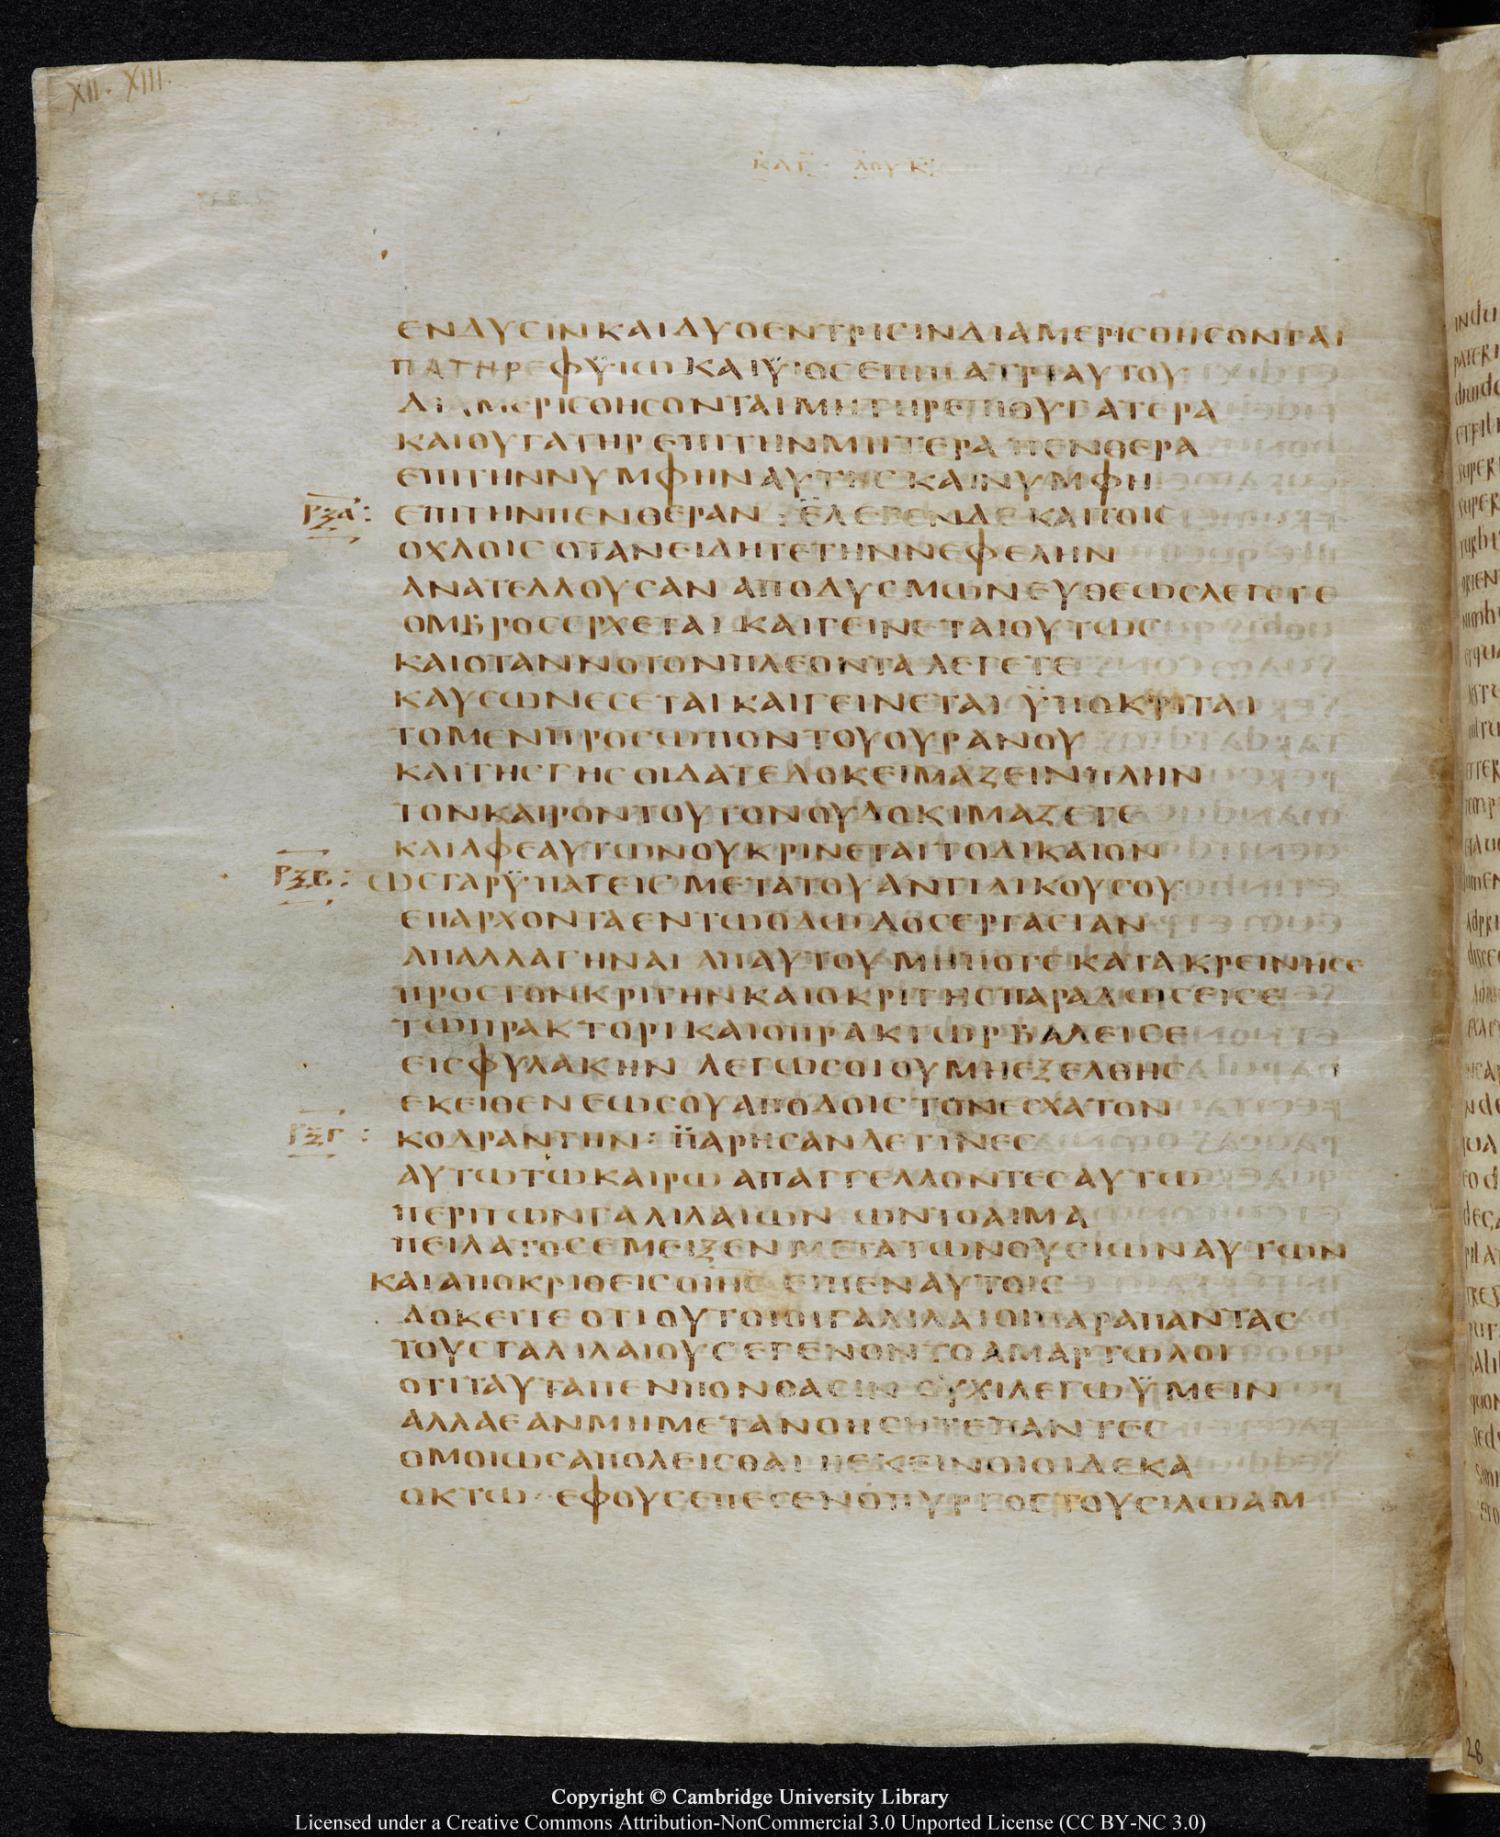 XII. XIII.
ΚΑΤ· ΛΟΥΚ
ΕΝΔΥCΙΝΚΑΙΔΥΟΕΝΤΡΙCΙΝΔΙΑΜΕΡΙCΘΗCΟΝΤΑΙ
ΠΑΤΗΡΕΦΫΙΩΚΑΙΫΙΟCΕΠΙΠΑΤΡΙΑΥΤΟΥ
ΔΙΑΜΕΡΙCΘΗCΟΝΤΑΙΜΗΤΗΡΕΠΙΘΥΓΑΤΕΡΑ
ΚΑΙΘΥΓΑΤΗΡΕΠΙΤΗΝΜΗΤΕΡΑ ΠΕΝΘΕΡΑ
ΕΠΙΤΗΝΝΥΜΦΗΝΑΥΤΗCΚΑΙΝΥΜΦΗ
ΡΞΑ: ΕΠΙΤΗΝΠΕΝΘΕΡΑΝ : ΕΛΕΓΕΝΔΕΚΑΙΤΟΙC
ΟΧΛΟΙC ΟΤΑΝΕΙΔΗΤΕΤΗΝΝΕΦΕΛΗΝ
ΑΝΑΤΕΛΛΟΥCΑΝ ΑΠΟΔΥCΜΩΝΕΥΘΕΩCΛΕΓΕΤΕ
ΟΜΒΡΟCΕΡΧΕΤΑΙ ΚΑΙΓΕΙΝΕΤΑΙΟΥΤΩC
ΚΑΙΟΤΑΝΝΟΤΟΝΠΛΕΟΝΤΑ ΛΕΓΕΤΕ
ΚΑΥCΩΝΕCΕΤΑΙΚΑΙΓΕΙΝΕΤΑΙ ΫΠΟΚΡΙΤΑΙ
ΤΟΜΕΝΠΡΟCΩΠΟΝΤΟΥΟΥΡΑΝΟΥ
ΚΑΙΤΗCΓΗCΟΙΔΑΤΕΔΟΚΕΙΜΑΖΕΙΝΠΛΗΝ
ΤΟΝΚΑΙΡΟΝΤΟΥΤΟΝΟΥΔΟΚΙΜΑΖΕΤΕ
ΚΑΙΑΦΕΑΥΤΩΝΟΥΚΡΙΝΕΤΑΙΤΟΔΙΚΑΙΟΝ
ΡΞΒ: ΩCΓΑΡΫΠΑΓΕΙCΜΕΤΑΤΟΥΑΝΤΙΔΙΚΟΥCΟΥ
ΕΠΑΡΧΟΝΤΑΕΝΤΩΟΔΩΔΟCΕΡΓΑCΙΑΝ
ΑΠΑΛΛΑΓΗΝΑΙ ΑΠΑΥΤΟΥΜΗΠΟΤΕΚΑΤΑΚΡΕΙΝΗCΕ
ΠΡΟCΤΟΝΚΡΙΤΗΝΚΑΙΟΚΡΙΤΗCΠΑΡΑΔΩCΕΙCΕ
ΤΩΠΡΑΚΤΟΡΙΚΑΙΟΠΡΑΚΤΩΡΒΑΛΕΙCΕ
ΕΙCΦΥΛΑΚΗΝ ΛΕΓΩCΟΙΟΥΜΗΕΞΕΛΘΗC
ΕΚΕΙΘΕΝΕΩCΟΥΑΠΟΔΟΙCΤΟΝΕCΧΑΤΟΝ
ΡΞΓ: ΚΟΔΡΑΝΤΗΝ : ΠΑΡΗCΑΝΔΕΤΙΝΕC
ΑΥΤΩΤΩΚΑΙΡΩ ΑΠΑΓΓΕΛΛΟΝΤΕCΑΥΤΩ
ΠΕΡΙΤΩΝΓΑΛΙΛΑΙΩΝ ΩΝΤΟΑΙΜΑ
ΠΕΙΛΑΤΟCΕΜΕΙΞΕΝΜΕΤΑΤΩΝΘΥCΙΩΝΑΥΤΩΝ
ΚΑΙΑΠΟΚΡΙΘΕΙCΟΙΗC ΕΙΠΕΝΑΥΤΟΙC
ΔΟΚΕΙΤΕΟΤΙΟΥΤΟΙΟΙΓΑΛΙΛΑΙΟΙΠΑΡΑΠΑΝΤΑC
ΤΟΥCΓΑΛΙΛΑΙΟΥCΕΓΕΝΟΝΤΟΑΜΑΡΤΩΛΟΙ
ΟΤΙΤΑΥΤΑΠΕΠΟΝΘΑCΙΝ ΟΥΧΙΛΕΓΩΫΜΕΙΝ
ΑΛΛΑΕΑΝΜΗΜΕΤΑΝΟΗCΗΤΕΠΑΝΤΕC
ΟΜΟΙΩCΑΠΟΛΕΙCΘΑΙΗΕΚΕΙΝΟΙΟΙΔΕΚΑ
ΟΚΤΩ·ΕΦΟΥCΕΠΕCΕΝΟΠΥΡΓΟCΤΟΥCΙΛΩΑΜ
28
Copyright © Cambridge University Library
Licensed under a Creative Commons Attribution-NonCommercial 3.0 Unported License (CC BY-NC 3.0)